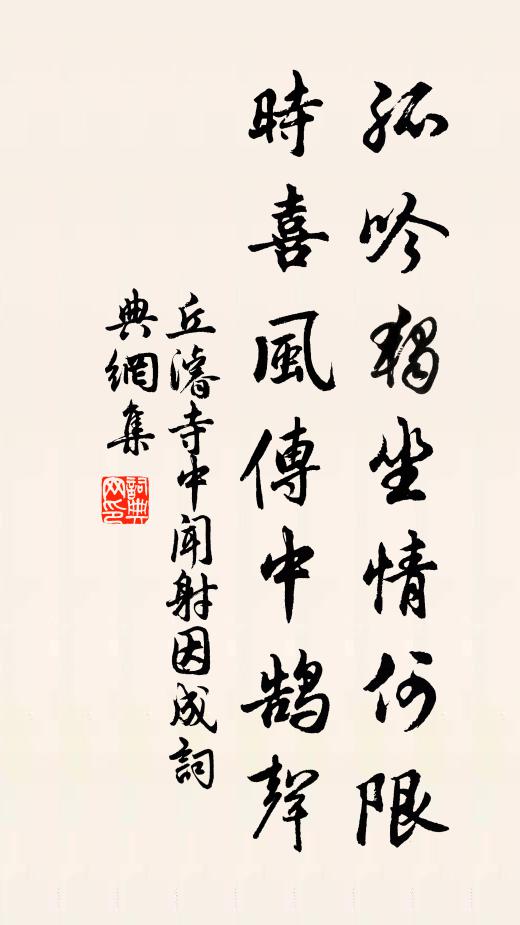 孤吟獨坐情何限
時喜風傳中鵠聲
丘濬寺中聞射因成詞
典網集
詞典网印